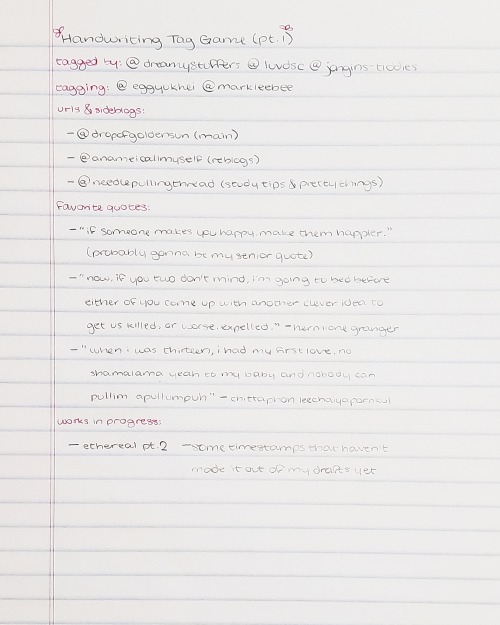 Handwriting Tag Game (pt.1)
tagged by: @dreamystuffers @luvdsc @jongins-tiddies
tagging: @eggyukhei @markleebee
urls & sideblogs:
- @dropofgoldensun (main)
- @anameicallmyself (reblogs)
- @needlepullingthread (study tips & pretty things)
favorite quotes:
- "if someone makes you happy, make them happier."
(probably gonna be my senior quote)
- "now, if you two don't mind, i'm going to bed before
either of you come up with another clever idea to
get us killed, or worse, expelled." - hermione granger
- "when i was thirteen, i had my first love, no
shamalama yeah to my baby and nobody can
pullim apullumpuh" - chittaphon leechaiyapornkul
works in progress:
- ethereal pt.2 - some timestamps that haven't
made it out of my drafts yet